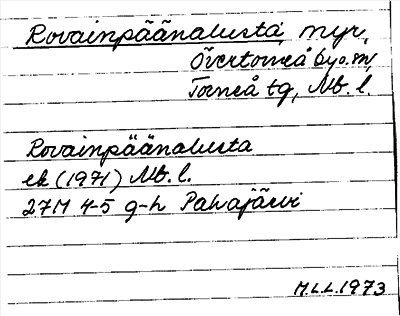 Rovainpäänalusta, myr,
Övertorneå byo.sn,
Torneå tg, Nb. l.
Rovainpäänalusta
ek (1971) Nb. l.
27M 4-5 g-h Palvajärvi
M.L.L.1973